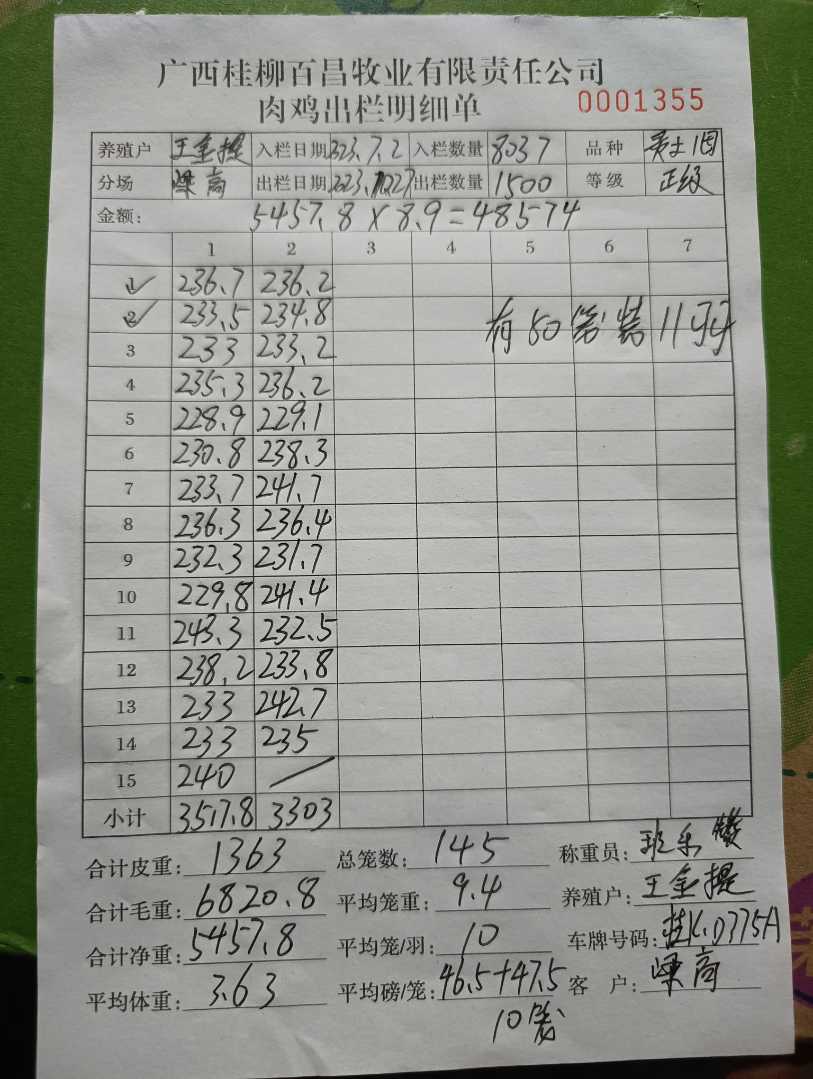 广西桂柳百昌牧业有限责任公司
肉鸡出栏明细单 0001355
养殖户 王金提 入栏日期 323.7.2 入栏数量 8037 品种
分场 出栏日期 出栏数量 1500 等级 正级
金额: 5457.8 × 8.9 = 48574
1 2 3 4 5 6 7
1 236.7 236.2
2 233.5 234.8 有50笼装11羽
3 233 233.2
4 235.3 236.2
5 228.9 229.1
6 230.8 238.3
7 233.7 241.7
8 236.3 236.4
9 232.3 231.7
10 229.8 241.4
11 243.3 232.5
12 238.2 233.8
13 233 242.7
14 233 235
15 240
小计 3517.8 3303
合计皮重: 1363 总笼数: 145 称重员:
合计毛重: 6820.8 平均笼重: 9.4 养殖户: 王金提
合计净重: 5457.8 平均笼/羽: 10 车牌号码: 桂K.D775A
平均体重: 3.63 平均磅/笼: 46.5+47.5 客户:
10笼